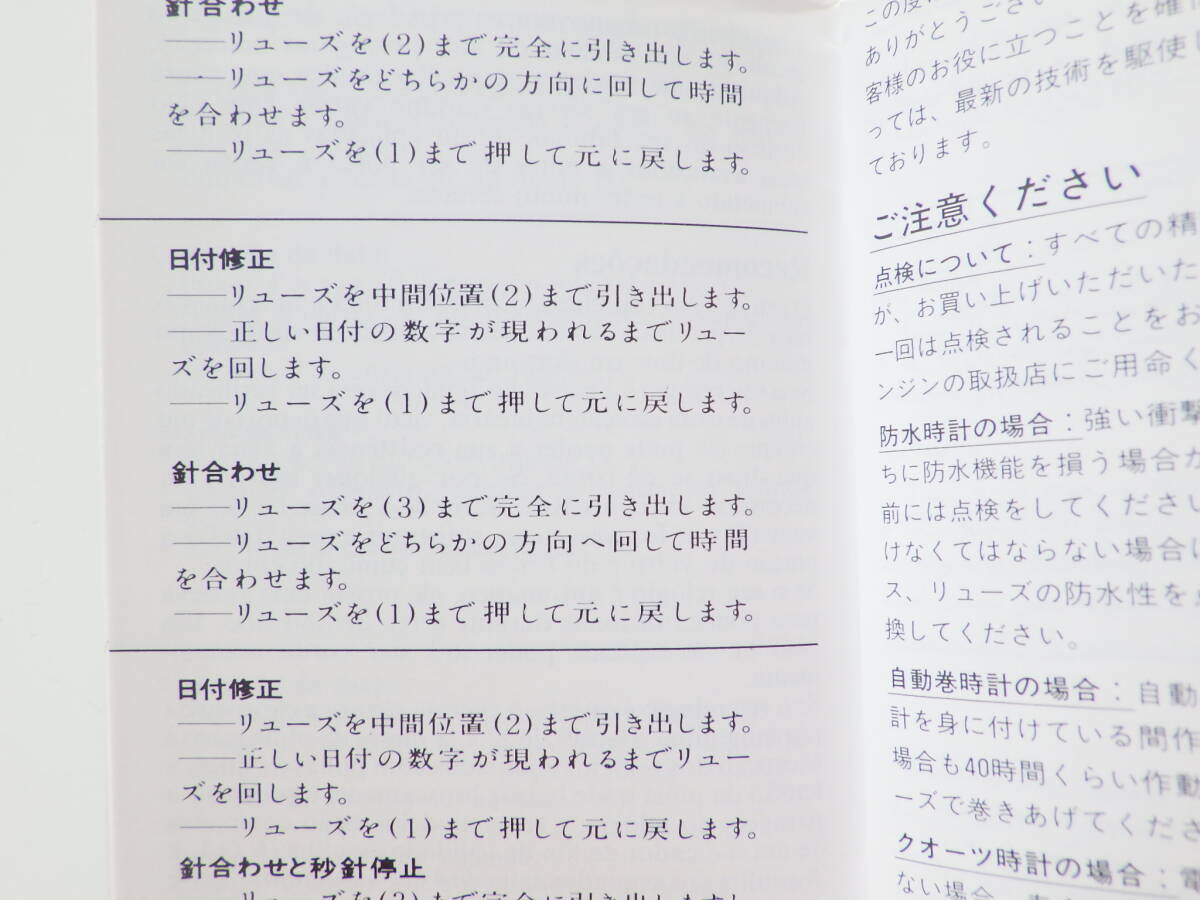 針合わせ
——リューズを(2)まで完全に引き出します。
——リューズをどちらかの方向に回して時間
を合わせます。
——リューズを(1)まで押して元に戻します。
日付修正
——リューズを中間位置(2)まで引き出します。
——正しい日付の数字が現われるまでリュー
ズを回します。
——リューズを(1)まで押して元に戻します。
針合わせ
——リューズを(3)まで完全に引き出します。
——リューズをどちらかの方向へ回して時間
を合わせます。
——リューズを(1)まで押して元に戻します。
日付修正
——リューズを中間位置(2)まで引き出します。
——正しい日付の数字が現われるまでリュー
ズを回します。
——リューズを(1)まで押して元に戻します。
針合わせと秒針停止
——リューズを(3)まで完全に引き出します
この度
ありがとうござい
客様のお役に立つことを確
っては、最新の技術を駆使し
ております。
ご注意ください
点検について：すべての精
が、お買い上げいただいた
一回は点検されることをお
ンジンの取扱店にご用命く
防水時計の場合：強い衝撃
ちに防水機能を損う場合が
前には点検をしてください
けなくてはならない場合は
ス、リューズの防水性を点
換してください。
自動巻時計の場合：自動
計を身に付けている間作
場合も40時間くらい作動
ーズで巻きあげてくださ
クオーツ時計の場合：電
ない場合